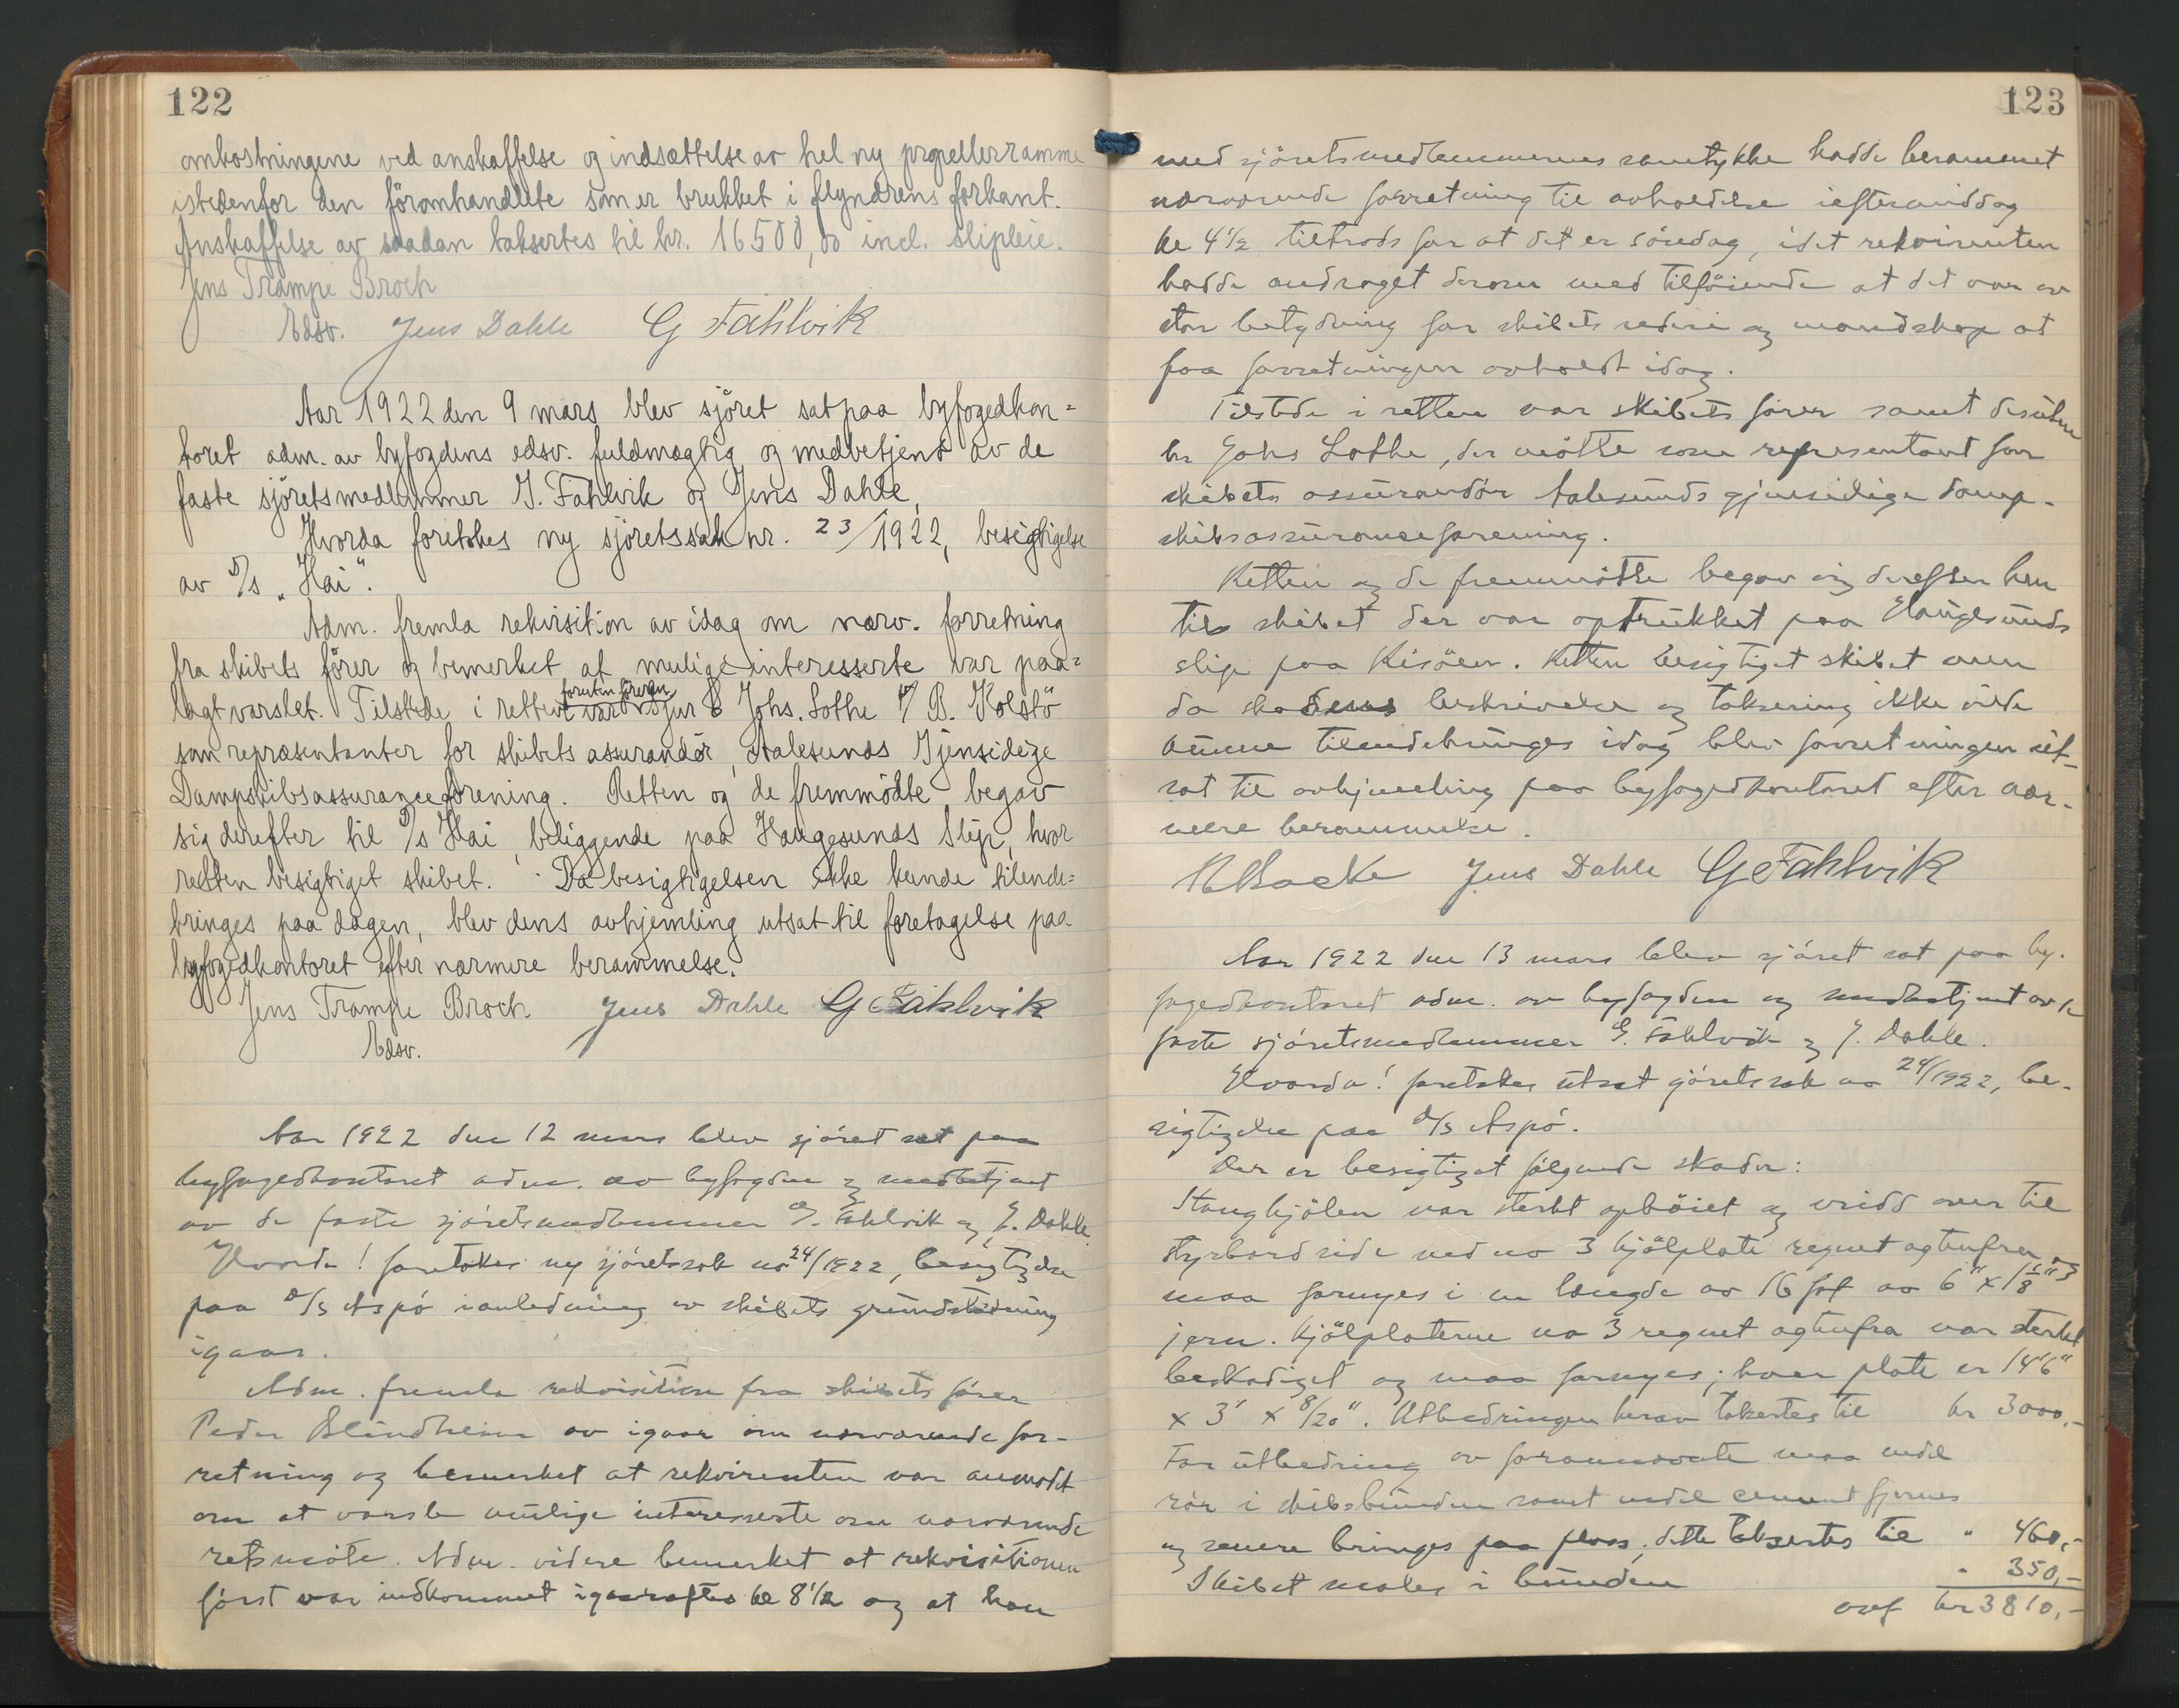 122
omkostningene ved anskaffelse og indsættelse av hel ny propellerramme
istedenfor den föromhandlete som er brukket i flyndrens forkant.
Anskaffelse av saadan taksertes til kr. 16500,00 incl. slipleie.
Jens Trampe Broch
Edsv. Jens Dahle G Fahlvik
Aar 1922 den 9 mars blev sjöret sat paa byfogedkon=
toret adm. av byfogdens edsv. fuldmægtig og medbetjent av de
faste sjöretsmedlemmer G. Fahlvik og Jens Dahle,
Hvorda foretokes ny sjöretssak nr. 23/1922, besigtigelse
av D/s "Hai".
Adm. fremla rekvisition av idag om nærv. forretning
fra skibets förer og bemerket at mulige interesserte var paa=
lagt varslet. Tilstede i retten var foruten föreren Johs. Lothe B. Kolstö
som repræsentanter for skibets assurandör, Aalesunds Gjensidige
Dampskibsassuranceforening. Retten og de fremmödte begav
sig derefter til D/s Hai beliggende paa Haugesunds Slip, hvor
retten besigtiget skibet. Da besigtigelsen ikke kunde tilende=
bringes paa dagen, blev dens avhjemling utsat til foretagelse paa
byfogedkontoret efter nærmere berammelse.
Jens Trampe Broch. Jens Dahle G Fahlvik
Edsv.
Aar 1922 den 12 mars blev sjöret sat paa
byfogedkontoret adm. av byfogden og medbetjent
av de faste sjöretsmedlemmer G. Fahlvik og J. Dahle.
Hvorda! foretokes ny sjöretssak no 24/1922, besigtigelse
paa D/S Aspö i anledning av skibets grundstödning
igaar.
Adm. fremla rekvisition fra skibets förer
Peder Blindheim av igaar om nærværende for-
retning og bemerket at rekvirenten var anmodet
om at varsle mulige interesserte om nærværende
retsmöte. Adm. videre bemerket at rekvisitionen
först var indkommet igaaraftes kl 8 1/2 og at han
123
med sjöretsmedlemmernes samtykke hadde berammet
nærværende forretning til avholdelse ieftermiddag
kl 4 1/2 tiltrods for at det er söndag, idet rekvirenten
hadde andraget derom med tilföiende at det var av
stor betydning for skibets rederi og mandskap at
faa forretningen avholdt idag.
Tilstede i retten var skibets förer samt desuten
hr Johs Lothe, der mötte som representant for
skibets assurandör Aalesunds gjensidige damp-
skibsassuranceforening.
Retten og de fremmötte begav sig derefter hen
til skibet der var optrukket paa Haugesunds
slip paa Risöen. Retten besigtiget skibet men
da skadens beskrivelse og taksering ikke vilde
kunne tilendebringes idag blev forretningen ut-
sat til avhjemling paa byfogedkontoret efter nær-
mere berammelse.
R Backe Jens Dahle G Fahlvik
Aar 1922 den 13 mars blev sjöret sat paa by-
fogedkontoret adm. av byfogden og medbetjent av de
faste sjöretsmedlemmer G. Fahlvik og J. Dahle.
Hvorda! foretokes utsat sjöretssak no 24/1922, be-
sigtigelse paa D/S Aspö.
Der er besigtiget fölgende skader:
Stangkjölen var sterkt opböiet og vridd over til
styrbord side ved no 3 kjölplate regnet agtenfra og
maa fornyes i en længde av 16 fot av 6" x 1 1/8"
jern. Kjölplaterne no 3 regnet agtenfra var sterkt
beskadiget og maa fornyes; hver plate er 14'6"
x 3' x 8/20". Utbedringen herav takertes til kr 3000,-
For utbedring av forannævnte maa endel
rör i skibsbunden samt endel cement fjernes
og senere bringes paa plass; dette taksertes til " 460,-
Skibet males i bunden " 350,-
ovf kr 3810,-